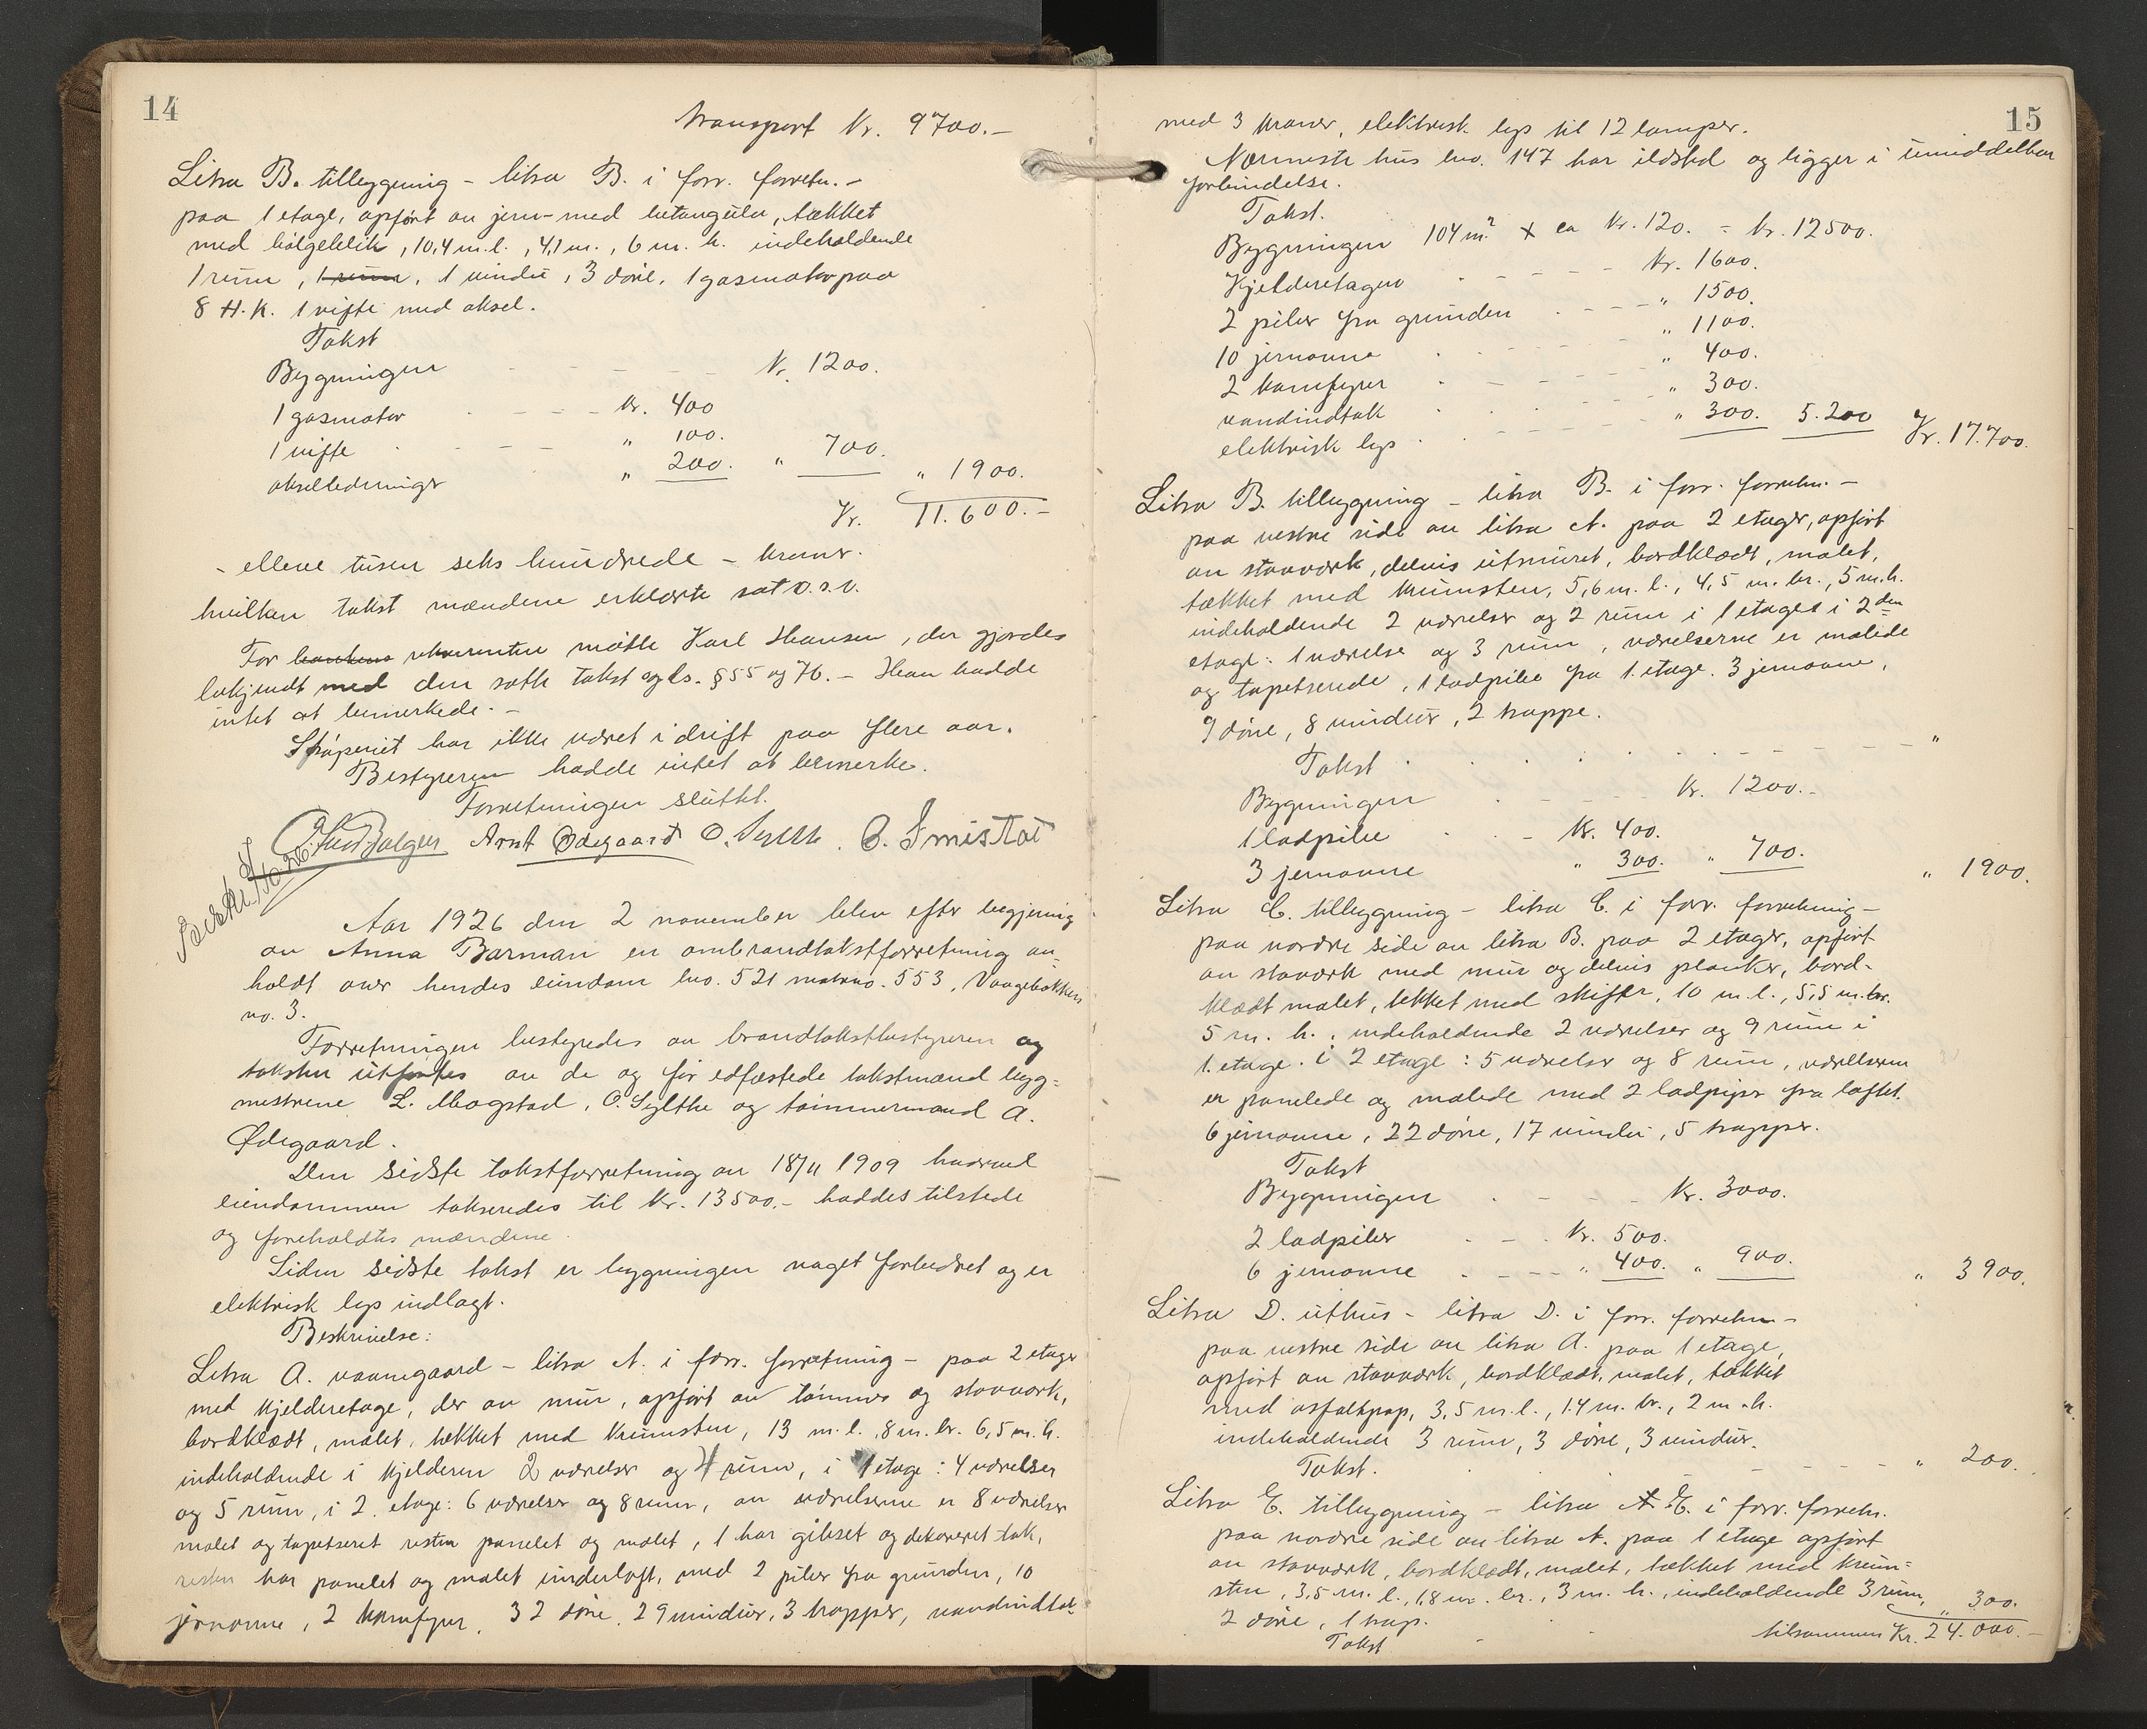 14
transport Kr. 9700.-
Litra B. tilbygning - litra B. i forr. forretn. -
paa 1 etage, opført av jern- med betongulv, tækket
med bølgeblik, 10,4 m. l., 4,1 m., 6 m. h. indeholdende
1 rum, 1 rum, 1 vindu, 3 døre, 1 gasmotor paa
8 H.K. 1 vifte med aksel.
Takst
Bygningen Kr. 1200.
1 gasmotor Kr. 400
1 vifte " 100.
akselledninger " 200. " 700. " 1900.
Kr. 11.600.-
- elleve tusen seks hundrede - kroner.
hvilken takst mændene erklærte sat o.s.v.
For bankens rekvirenten møtte Karl Hansen, der gjordes
bekjendt med den satte takst og ls. § 55 og 76. - Han hadde
intet at bemerkede. -
Støperiet har ikke været i drift paa flere aar.
Bestyreren hadde intet at bemerke.
Forretningen sluttet.
Arnt Ødegaard O. Sylthe. O. Smistad
Aar 1926 den 2 november blev efter begjering
av Anna Barman en ombrandtakstforretning av-
holdt over hendes eiendom bno. 521 matrno. 553, Vaagebakken
no. 3.
Forretningen bestyredes av brandtakstbestyreren og
taksten utførtes av de og før edfæstede takstmænd bygg-
mestrene L. Magstad, O. Sylthe og tømmermand A.
Ødegaard.
Den sidste takstforretning av 18/11 1909 hvorved
eiendommen takseredes til kr. 13500.- haddes tilstede
og foreholdtes mændene.
Siden sidste takst er bygningen noget forbedret og er
elektrisk lys indlagt.
Beskrivelse:
Litra A. vaaningsgaard - litra A. i forr. forretning - paa 2 etager
med kjelderetage, der av mur, opført av tømmer og stavverk,
bordklædt, malet, tækket med krumsten, 13 m. l. 8 m. br. 6,5 m. h.
indeholdende i kjelderen 2 værelser og 4 rum, i 1 etage: 4 værelser
og 5 rum, i 2. etage: 6 værelser og 8 rum, av værelserne er 8 værelser
malet og tapetseret resten panelet og malet, 1 har gibset og dekoreret tak,
resten har panelet og malet underloft, med 2 piber fra grunden, 10
jernovne, 2 komfyrer, 32 døre, 29 vinduer, 3 trapper, vandindtak
15
med 3 kraner, elektrisk lys til 12 lamper.
Nærmeste hus bno. 147 har ildsted og ligger i umiddelbar
forbindelse.
Takst.
Bygningen 104 m² x ca Kr. 120. = kr. 12500.
Kjelderetagen Kr. 1600.
2 piber fra grunden " 1500.
10 jernovne " 1100.
2 komfyrer " 400.
vandindtak " 300.
elektrisk lys " 300. 5.200 Kr. 17.700.
Litra B. tilbygning - litra B. i forr. forretn. -
paa vestre side av litra A. paa 2 etager, opført
av stavværk, delvis utmuret, bordklædt, malet,
tækket med krumsten, 5,6 m. l., 4,5 m. br., 5 m. h.
indeholdende 2 værelser og 2 rum i 1 etage i 2den
etage: 1 værelse og 3 rum, værelserne er malede
og tapetserede, 1 ladpibe fra 1. etage. 3 jernovne,
9 døre, 8 vinduer, 2 trappe.
Takst "
Bygningen Kr. 1200.-
1 ladpibe Kr. 400.
3 jernovne " 300. " 700. " 1900.
Litra C. tilbygning - litra C. i forr. forretning -
paa nordre side av litra B. paa 2 etager, opført
av stavværk med mur og delvis planker, bord-
klædt malet, tekket med skifer, 10 m. l., 5,5 m. br.
5 m. h., indeholdende 2 værelser og 9 rum i
1. etage. i 2 etage: 5 værelser og 8 rum, værelserne
er panelede og malede med 2 ladpiper fra loftet.
6 jernovne, 22 døre, 17 vindu, 5 trapper.
Takst
Bygningen Kr. 3000.
2 ladpiber Kr. 500.
6 jernovne " 400. " 900. " 3900.
Litra D. uthus - litra D. i forr. forretn -
paa vestre side av litra A. paa 1 etage,
opført av stavværk, bordklædt, malet, tækket
med asfaltpap, 3,5 m. l., 1.4 m. br., 2 m. h.
indeholdende 3 rum, 3 døre, 3 vinduer.
Takst. " 200.
Litra E. tilbygning - litra A E. i forr. forretn.
paa nordre side av litra A. paa 1 etage opført
av stavværk, bordklædt, malet, tækket med krum-
sten, 3,5 m. l., 1,8 m. br., 3 m. h., indeholdende 3 rum,
2 døre, 1 trap. " 300.
Takst tilsammen Kr. 24.000.-